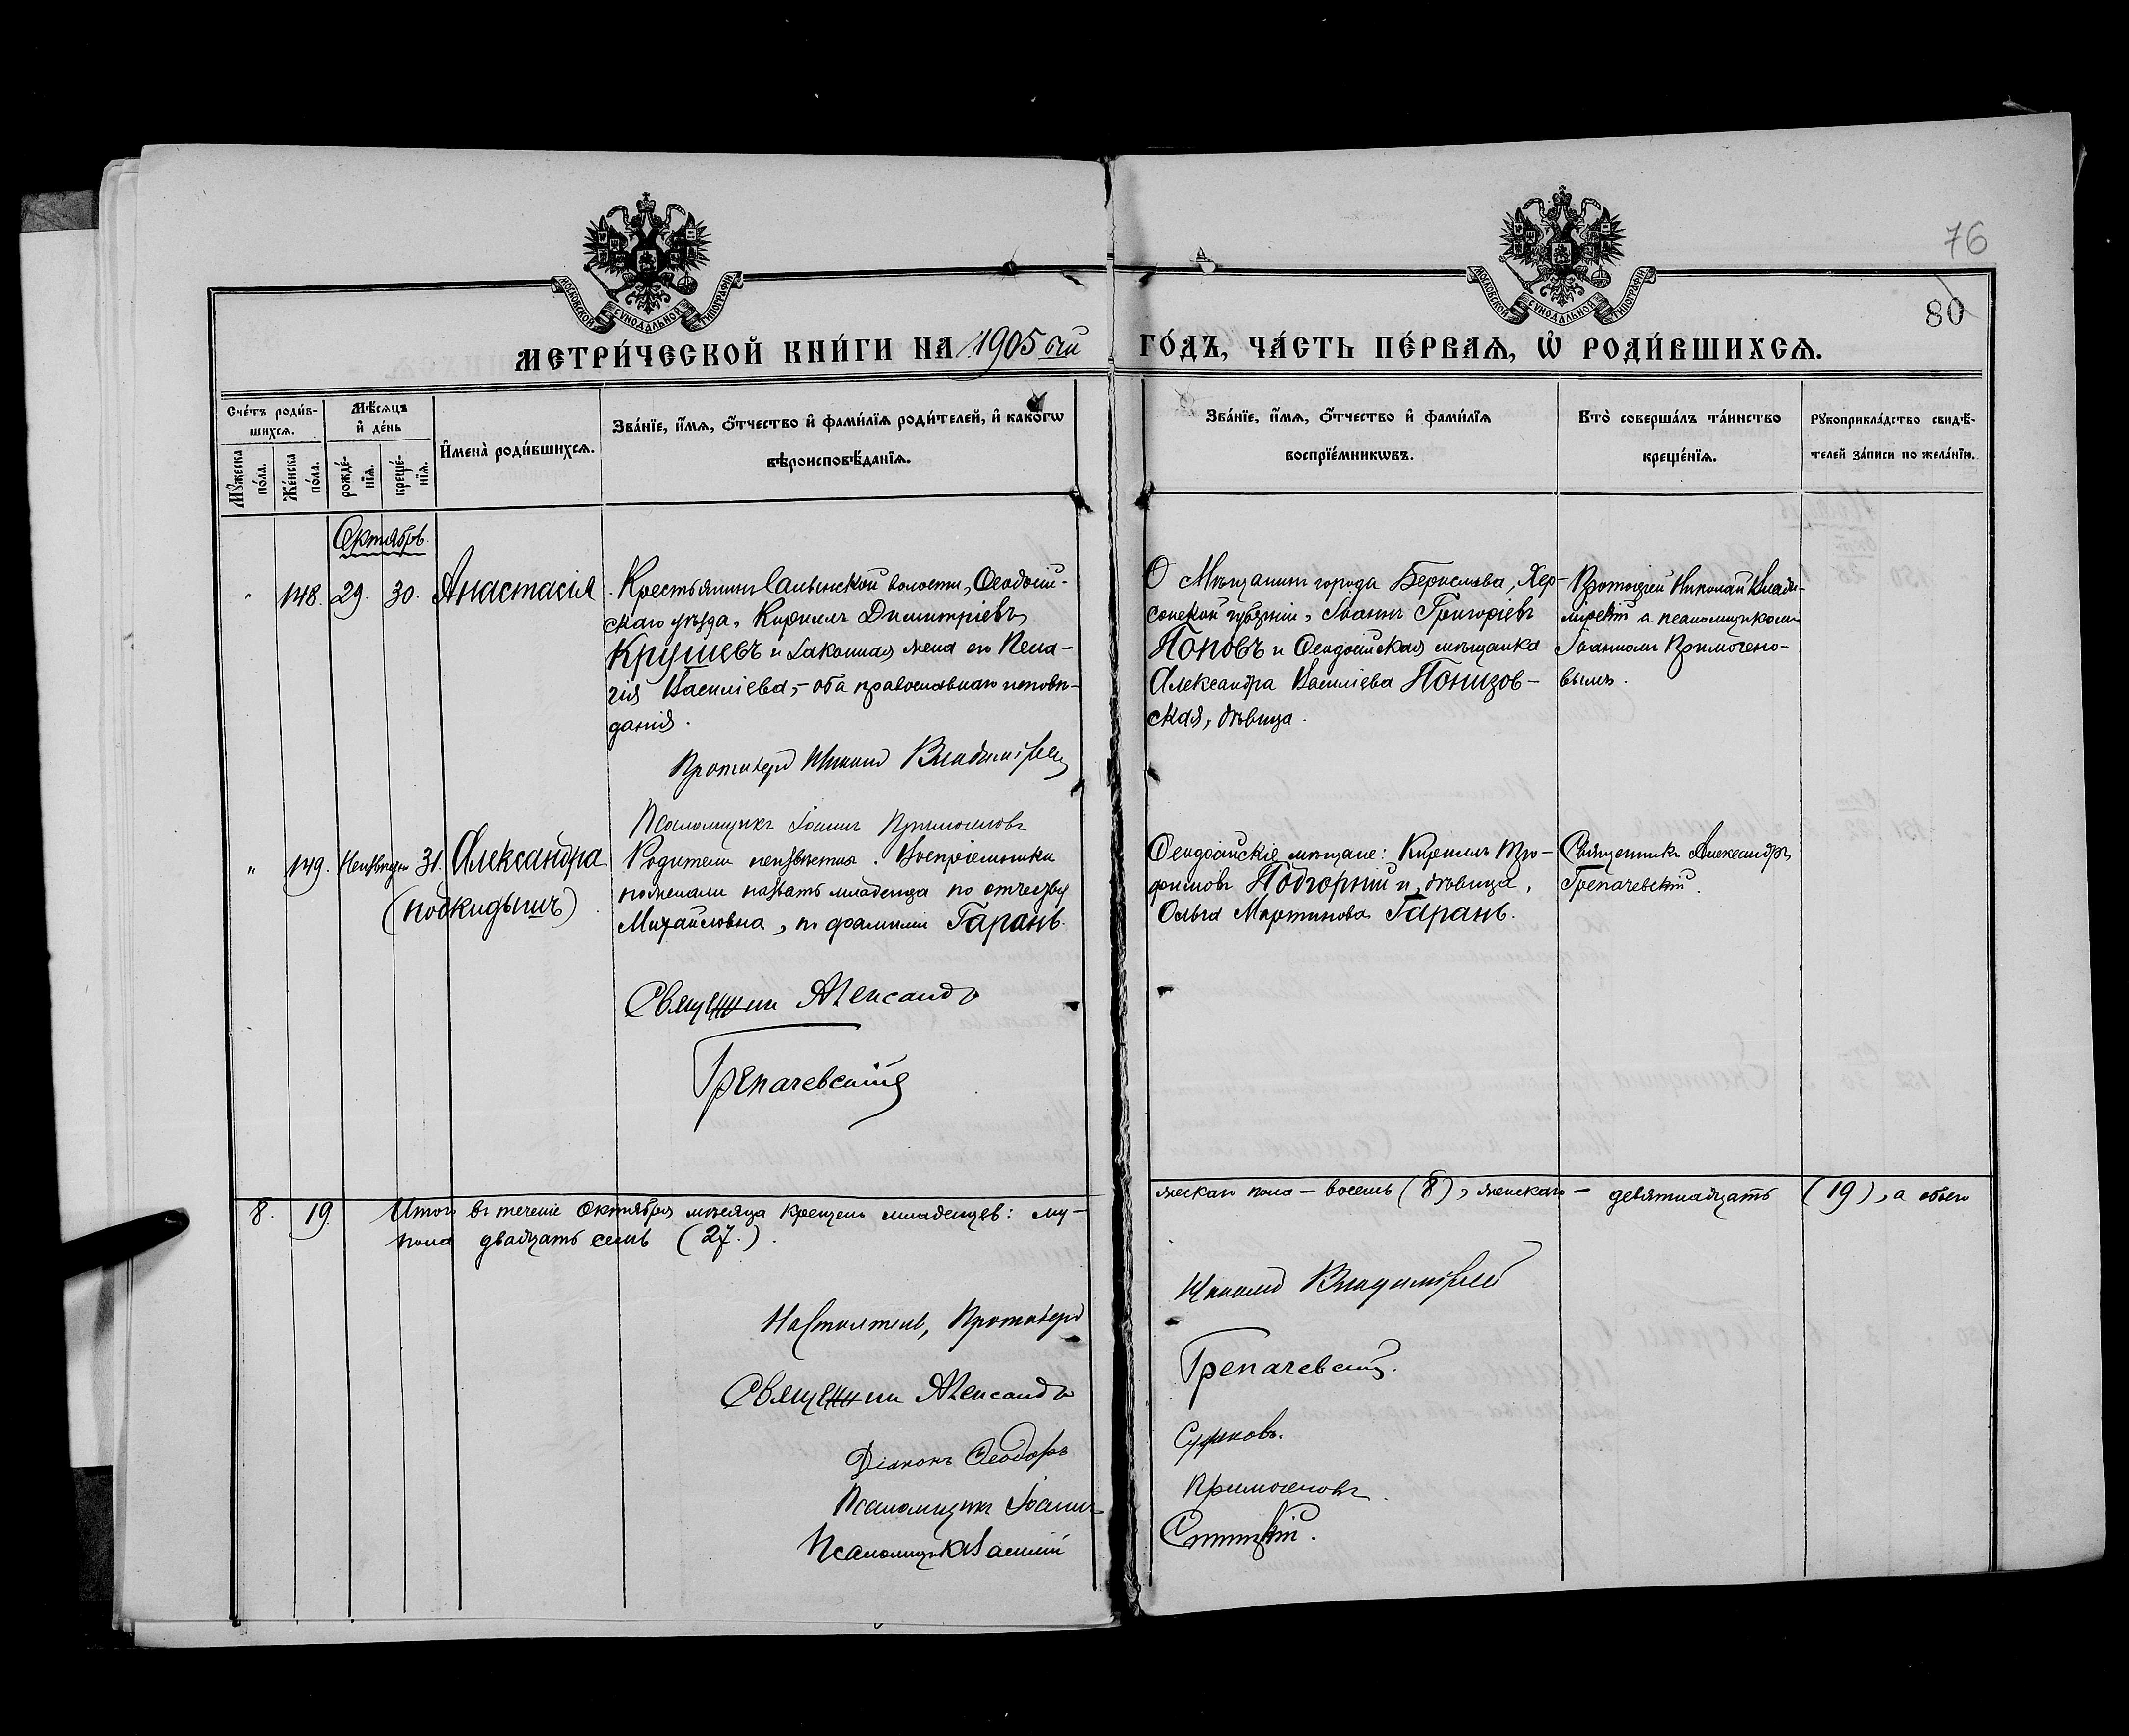 76
80
МОСКОВСКОЙ СѴНОДАЛЬНОЙ ТИПОГРАФІИ
МОСКОВСКОЙ СѴНОДАЛЬНОЙ ТИПОГРАФІИ
МЕТРИ́ЧЕСКОЙ КНИ́ГИ НА 1905 ый ГО́ДЪ, ЧА́СТЬ ПЕ́РВАѦ, Ѡ РОДИ́ВШИХСѦ.
Сче́тъ роди́в-
шихсѧ.
Мꙋ́жеска по́ла.
Же́нска по́ла.
Мѣ́сѧцъ
и҆ де́нь
рожде́-
нїѧ.
креще́-
нїѧ.
И҆мена̀ роди́вшихсѧ.
Зва́нїе, и҆́мѧ, ѻ҆́тчество и҆ фами́лїѧ роди́телей, и҆ како́гѡ
вѣроисповѣ́данїѧ.
Зва́нїе, и҆́мѧ, ѻ҆́тчество и҆ фами́лїѧ
воспрїе́мникѡвъ.
Кто̀ соверша́лъ та́инство
креще́нїѧ.
Рꙋкоприкла́дство свидѣ́-
телей за́писи по жела́нїю.
Октябрь
148. 29. 30. Анастасія
Крестьянинъ Салынской волости, Ѳеодосій-
скаго уѣзда, Кириллъ Димитріевъ
Крушевъ и законная жена его Пела-
гія Василіева, – оба православнаго исповѣ-
данія.
Протоіерей Николай Владимірскій
Псаломщикъ Іоаннъ Примогеновъ
Мѣщанинъ города Берислава, Хер-
сонской губерніи, Іоаннъ Григоріевъ
Поповъ и Ѳеодосійская мѣщанка
Александра Василіева Понизов-
ская, дѣвица.
Протоіерей Николай Влади-
мірскій а псаломщикомъ
Іоанномъ Примогено-
вымъ.
" 149. Неизвѣстно 31. Александра
(подкидышъ)
Родители неизвѣстны. Воспріемники
пожелали назвать младенца по отчеству
Михайловна, по фамиліи Гарань.
Священникъ Александръ
Грепачевскій
Ѳеодосійскіе мѣщане: Кириллъ Тро-
фимовъ Подгорный и дѣвица,
Ольга Мартинова Гарань.
Священникъ Александръ
Грепачевскій.
8. 19. Итого въ теченіе Октября мѣсяца крещено младенцевъ: му-
жескаго пола – восемь (8), женскаго – девятнадцать (19), а обоего
пола двадцать семь (27.).
Настоятель, Протоіерей Николай Владимірскій
Священникъ Александръ Грепачевскій.
Діаконъ Ѳеодоръ
Псаломщикъ Іоаннъ Примогеновъ.
Псаломщикъ Василій